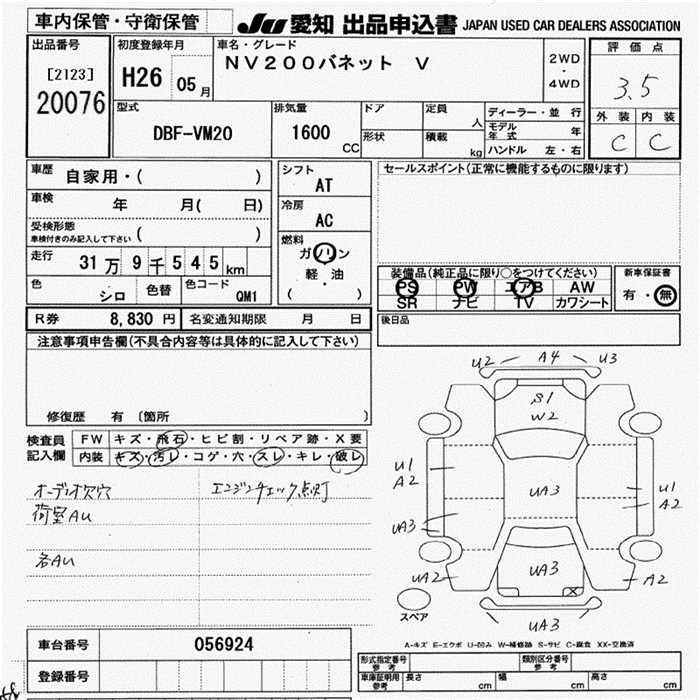 車内保管・守衛保管
JU 愛知 出品申込書 JAPAN USED CAR DEALERS ASSOCIATION
出品番号
[2123]
20076
初度登録年月
H26 05月
車名・グレード
NV200バネット V
2WD
・
4WD
評価点
3.5
外装 内装
C C
型式
DBF-VM20
排気量
1600
CC
ドア
形状
定員
人
積載
kg
ディーラー・並行
モデル年式 年
ハンドル 左・右
車歴 自家用・( )
車検 年 月( 日)
受検形態
車検付きのみ記入して下さい ( )
走行 31万9千545km
色 シロ 色替 色コード QM1
シフト
AT
冷房
AC
燃料
ガソリン
軽・油
( )
セールスポイント(正常に機能するものに限ります)
装備品(純正品に限り○をつけてください)
PS PW エアB AW
SR ナビ TV カワシート
新車保証書
有・無
後日品
R券 8,830円 名変通知期限 月 日
注意事項申告欄(不具合内容等は具体的に記入して下さい)
修復歴 有 〔箇所 〕
検査員
記入欄
FW キズ・飛石・ヒビ割・リペア跡・X要
内装 キズ・汚レ・コゲ・穴・スレ・キレ・破レ
オーディオ欠穴 エンジンチェック点灯
荷室AU
各AU
U2 A4 U3
S1
W2
U1
A2
UA3
U1
A2
UA3
UA2
UA3
A2
UA3
スペア
A-キズ E-エクボ U-凹み W-補修跡 S-サビ C-腐食 XX-交換済
車台番号 056924
登録番号
形式指定番号
参考
類別区分番号
参考
車庫証明用
参考
長さ cm 幅 cm 高さ cm